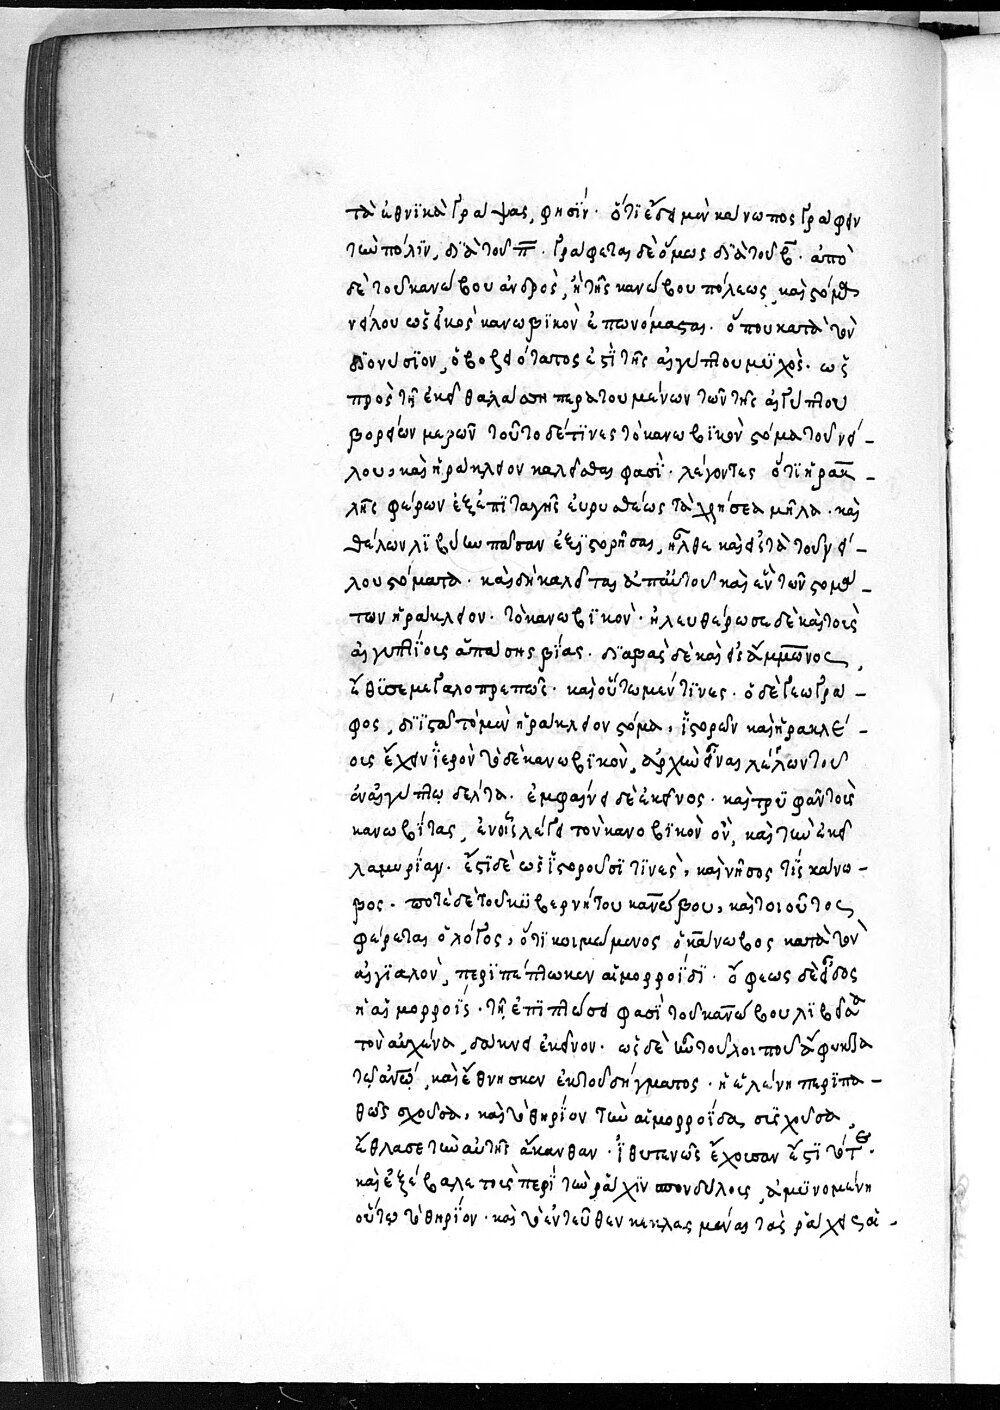 τὰ ἐθνϊκὰ γράψας, φησϊν· ὅτϊ ἔδει μὲν καινωπος γράφειν
τὴν πόλϊν, δϊὰ τοῦ π. γράφεται δὲ ὅμως δϊὰ τοῦ β. ἀπὸ
δὲ τοῦ κανώβου ἀνδρὸς, ἢ τῆς κανώβου πόλεως, καὶ στόμα
νείλου ὡς εἰκὸς κανωβϊκὸν ἐπωνόμασται. ὅπου κατὰ τὸν
δϊονυσϊον, ὁ βορειότατος ἐστὶ τῆς αἰγύπτου μϋχὸς. ὡς
πρὸς τῇ ἐκεῖ θαλάσσῃ περατουμένων τῶν τῆς αἰγύπτου
βορείων μερῶν τοῦτο δέ τϊνες τὸ κανωβϊκὸν στόμα τοῦ νεί-
λου, καὶ ἡράκλειον καλεῖσθαι φασὶ. λέγοντες ὅτϊ ἡρακ-
λῆς φέρων ἐξ ἐπϊταγῆς εὐρυσθέως τὰ χρύσεα μῆλα. καὶ
θέλων λϊβύην πᾶσαν ἐξϊστορῆσαι, ἦλθε καὶ εἰς τὰ τοῦ νεί-
λου στόματα. καὶ δὴ καλεῖται ἀπ' αὐτοῦ καὶ ἓν τῶν στομά-
των ἡράκλειον. τὸ κανωβϊκὸν. ἠλευθέρωσε δὲ καὶ τοὺς
αἰγυπτΐους ἁπάσης βίας. δϊαβὰς δὲ καὶ εἰς ἄμμωνος,
ἔθϊσε μεγαλοπρεπῶς. καὶ οὕτω μέν τϊνες. ὁ δὲ γεωγρά-
φος, δϊϊστᾷ τὸ μὲν ἡράκλειον στόμα, ἱστορῶν καὶ ἡρακλέ-
ους ἔχειν ἱερὸν τὸ δὲ κανωβϊκὸν, ἀρχὴν εἶναι λέγων τοῦ
ἐν αἰγύπτῳ δέλτα. ἐμφαίνει δὲ ἐκεῖνος. καὶ τρϋφᾶν τοὺς
κανωβΐτας, ἐν οἷς λέγει τὸν κανοβϊκὸν ὂν, καὶ τὴν ἐκεῖ
λαμυρίαν. ἔστϊ δὲ ὡς ἱστοροῦσϊ τϊνὲς, καὶ νῆσος τϊς κάνω-
βος. ποτὲ δὲ τοῦ κϋβερνήτου κανώβου, καὶ τοιοῦτος
φέρεται ὁ λόγος, ὅτϊ κοιμώμενος ὁ κάνωβος κατὰ τὸν
αἰγϊαλὸν, περϊπέπτωκεν αἱμορροΐδϊ. ὄφεως δὲ εἶδος
ἡ αἱμορροΐς. τῇ ἐπϊπλώσει φασὶ τοῦ κανώβου λϊβάδα
τὸν αὐχένα, δάκνει ἐκεῖνον. ὡς δὲ τοῦ λοιποῦ ἀφυκτα
τῷ ἀνθρώπῳ, καὶ ἔθνησκεν ἐκ τοῦ δήγματος. ἡ ἑλένη περϊπα-
θῶς σχοῦσα, καὶ τὸ θηρίον τὴν αἱμορροΐδα συσχοῦσα,
ἔθλασε τὴν αὐτῆς ἄκανθαν. ἰθυτενῶς ἔχουσαν ἔστϊ τότε.
καὶ ἐξέβαλε τοὺς περὶ τὴν ράχϊν σπονδύλους, ἀμϋνομένη
οὕτω τὸ θηρΐον. καὶ τὸ ἐντεῦθεν κεκλασμένας τὰς ράχεις αἱ-